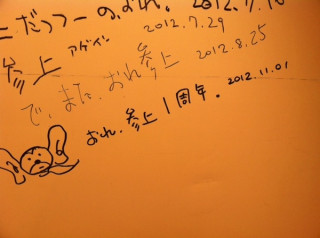 こだっつーの、おれ。 2012.7.1
参上 アゲイン 2012.7.29
で、また、おれ、参上 2012.8.25
おれ、参上1周年。 2012.11.01